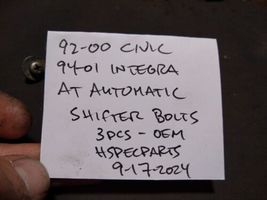 92-00 CIVIC
94-01 INTEGRA
AT AUTOMATIC
SHIFTER BOLTS
3PCS - OEM
HSPECPARTS
9-17-2024